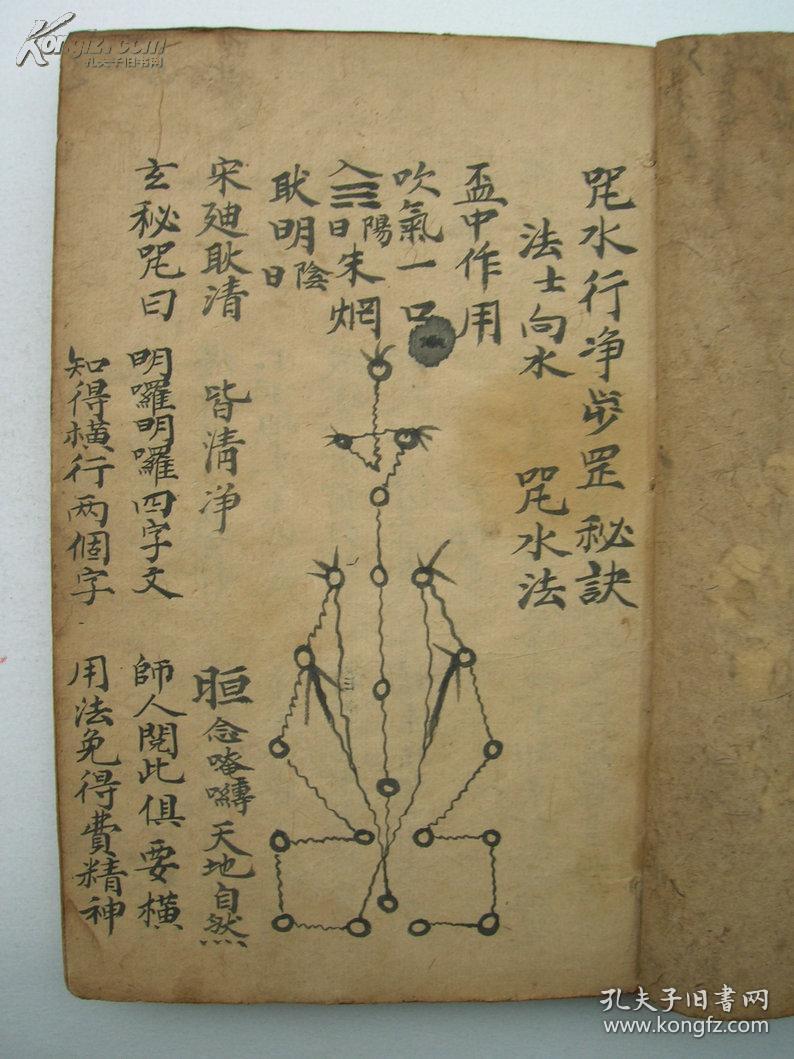 咒水行净步罡 秘訣
法士向水 咒水法
盃中作用
吹氣一口
入 陽日 朱炯
耿明 陰日
宋廸耿清 皆清净 晅 念唵囀天地自然
玄秘咒曰 明囉明囉四字文 師人閱此俱要横
知得横行两個字 用法免得費精神
Kongfz.com
孔夫子旧书网
孔夫子旧书网
www.kongfz.com